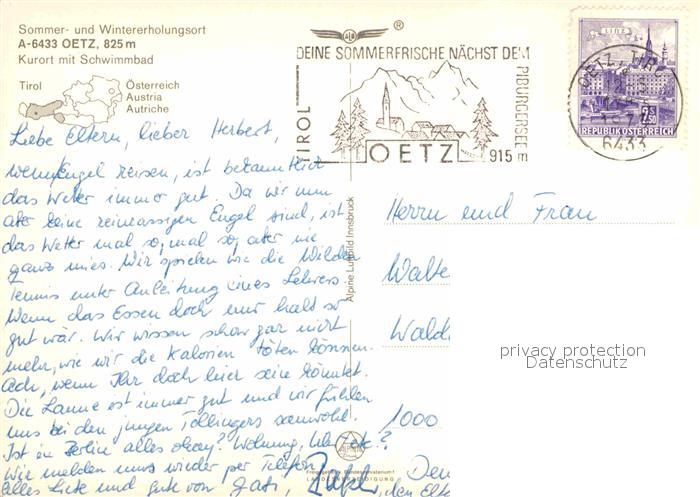 Sommer- und Wintererholungsort
A-6433 OETZ, 825 m
Kurort mit Schwimmbad
Tirol
Österreich
Austria
Autriche
®
DEINE SOMMERFRISCHE NÄCHST DEM
PIBURGERSEE
915 m
TIROL
OETZ
LINZ
2.50
REPUBLIK ÖSTERREICH
OETZ, TIROL
6433
Liebe Eltern, lieber Herbert,
wenn Engel reisen, ist bekanntlich
das Wetter immer gut. Da wir nun
aber keine reinrassigen Engel sind, ist
das Wetter mal so, mal so, aber nie
ganz mies. Wir spielen wie die Wilden
Tennis unter Anleitung eines Lehrers
Wenn das Essen doch nur halb so
gut wär. Wir wissen schon gar nicht
mehr, wie wir die Kalorien töten können.
Ach, wenn Ihr doch hier sein könntet.
Die Laune ist immer gut und wir fühlen
uns bei den jungen sauwohl.
Ist in Berlin alles okay? Wohnung,
Wir melden uns wieder per Telefon,
Alles Liebe und gute von
Alpine Luftbild Innsbruck
Herrn und Frau
Walte
Wald
1000
privacy protection
Datenschutz
LANDESVERTEIDIGUNG
den Elte